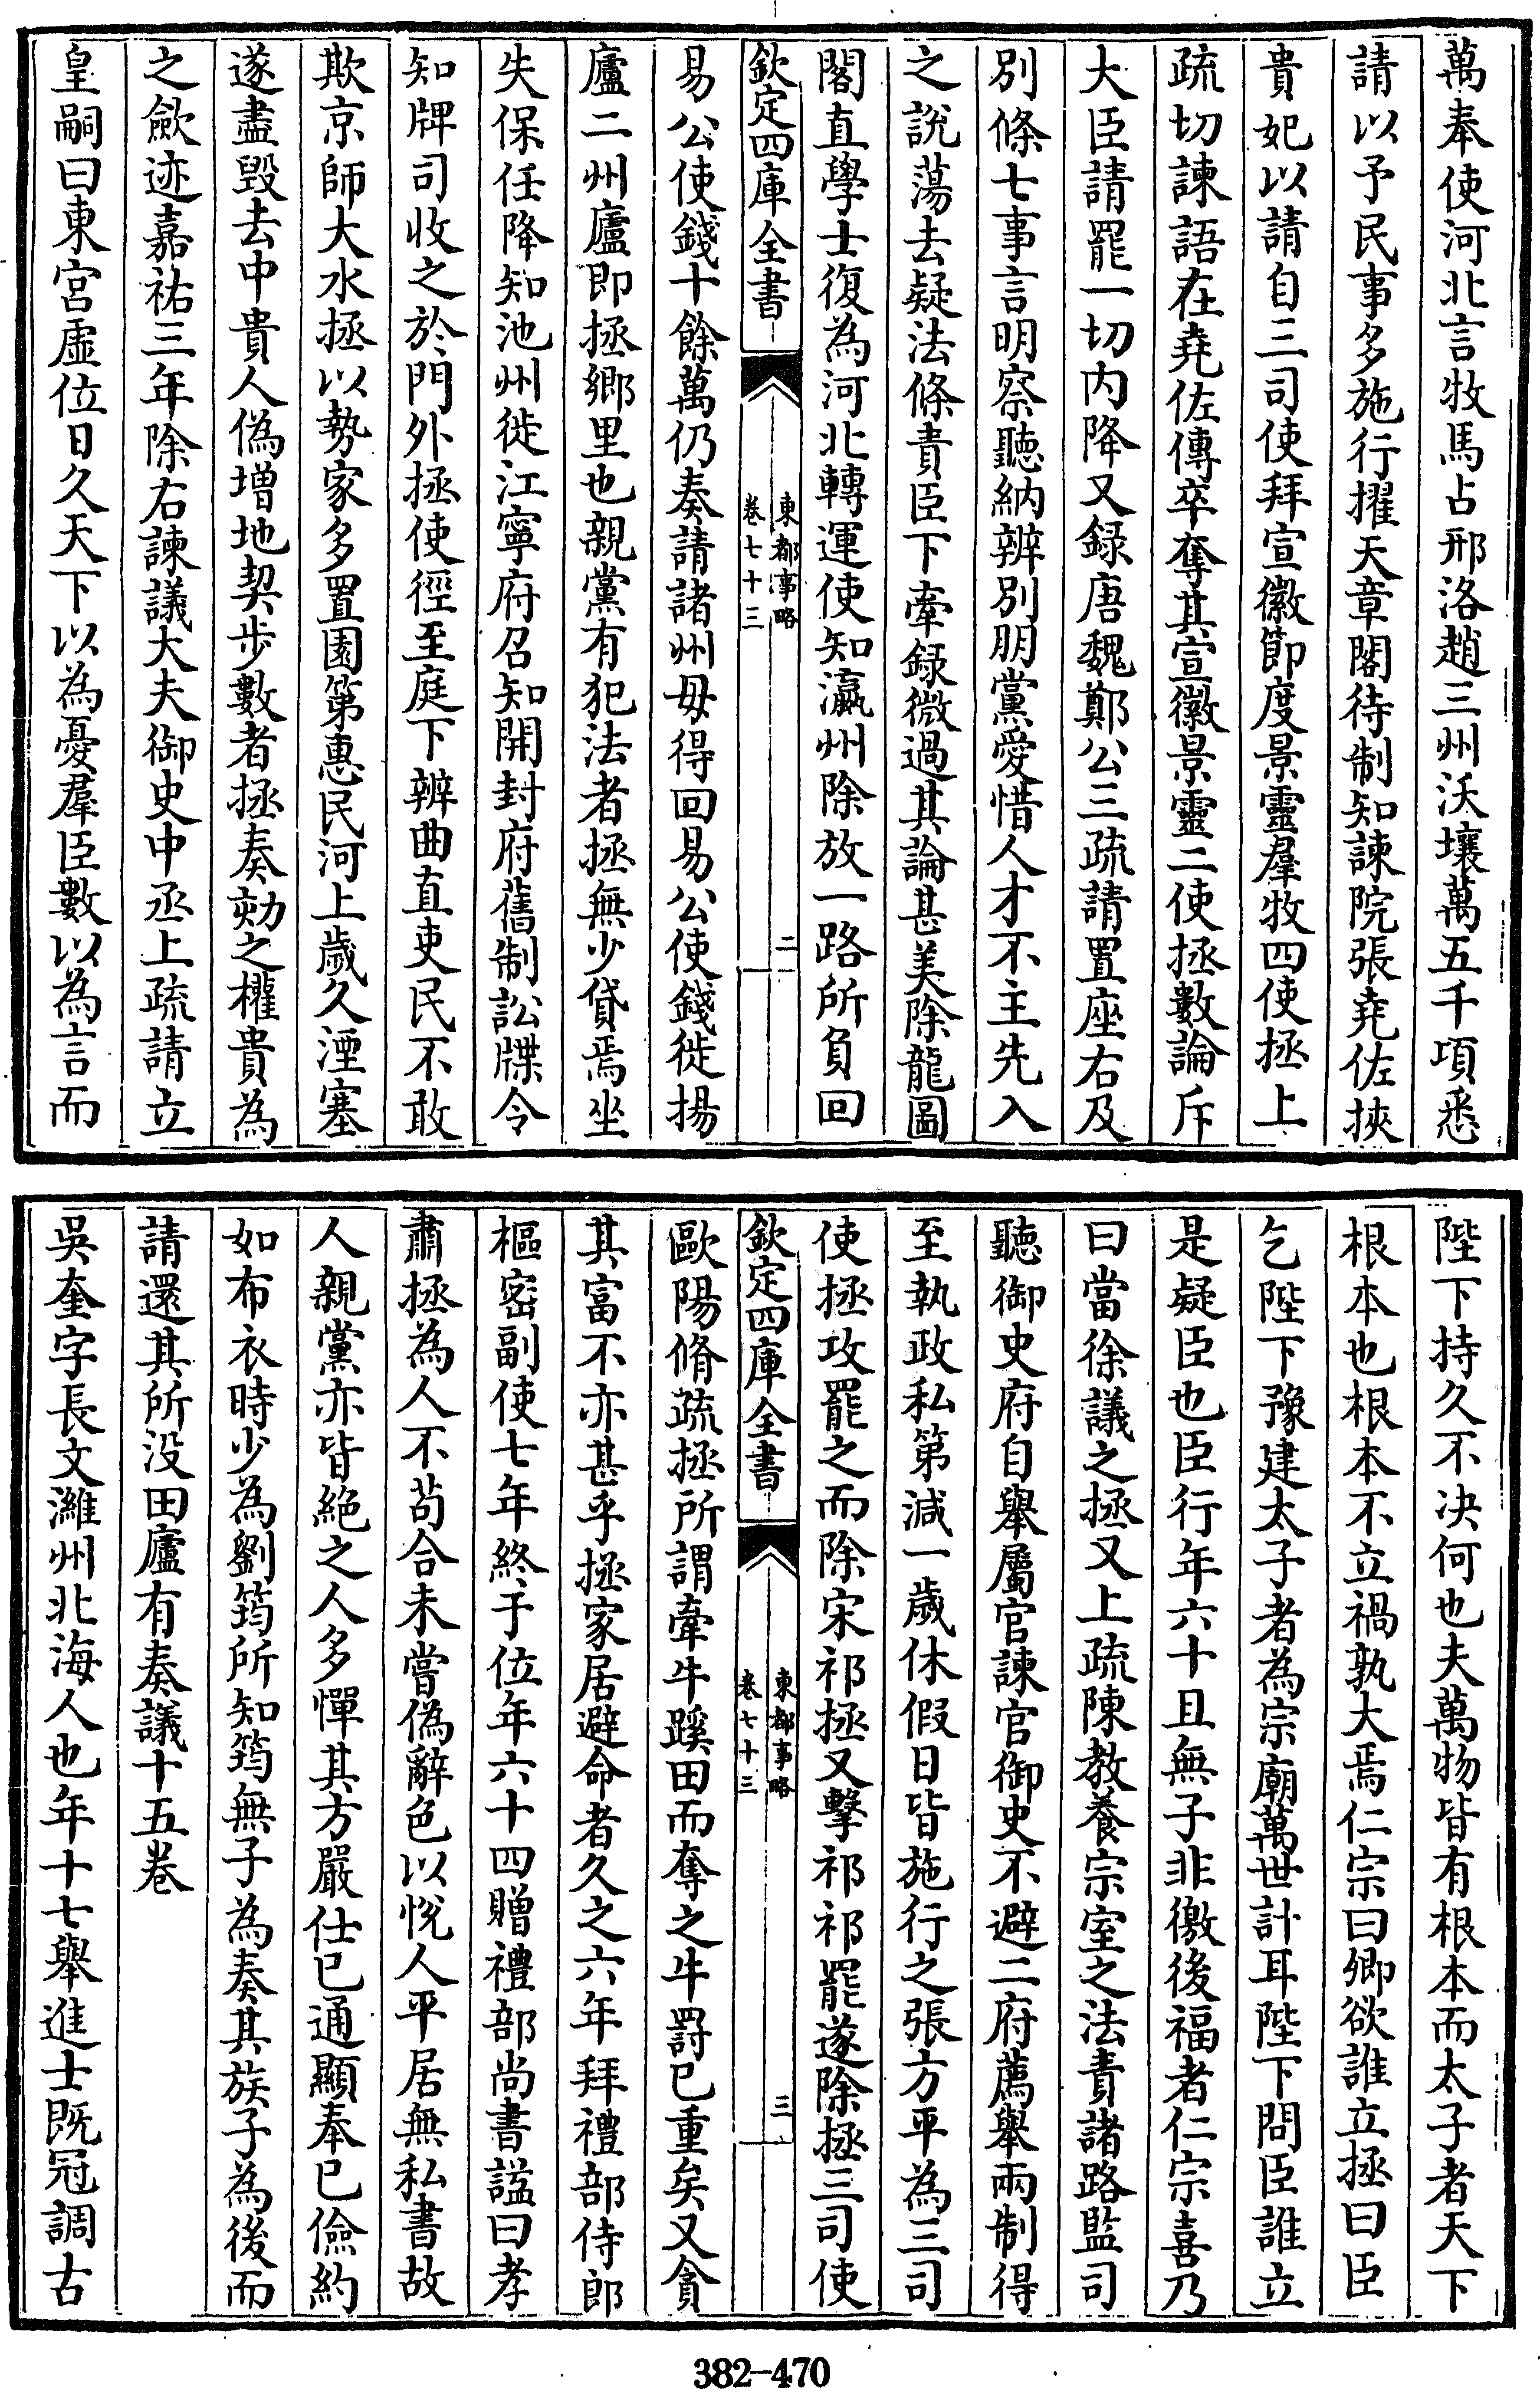 萬奉使河北言牧馬占邢洛趙三州沃壤萬五千項悉
請以予民事多施行擢天章閣待制知諫院張堯佐挾
貴妃以請自三司使拜宣徽節度景靈羣牧四使拯上
疏切諫語在堯佐傳卒奪其宣徽景靈二使拯數論斥
大臣請罷一切内降又録唐魏鄭公三疏請置座右及
別條七事言明察聽納辨別朋黨愛惜人才不主先入
之說蕩去疑法條責臣下牽録微過其論甚美除龍圖
閣直學士復為河北轉運使知瀛州除放一路所負回
欽定四庫全書
東都事略
卷七十三
二
易公使錢十餘萬仍奏請諸州毋得回易公使錢徙揚
廬二州廬即拯鄉里也親黨有犯法者拯無少貸焉坐
失保任降知池州徙江寧府召知開封府舊制訟牒令
知牌司收之於門外拯使徑至庭下辨曲直吏民不敢
欺京師大水拯以勢家多置園第惠民河上歲久湮塞
遂盡毀去中貴人偽增地契步數者拯奏劾之權貴為
之歛迹嘉祐三年除右諫議大夫御史中丞上疏請立
皇嗣曰東宮虛位日久天下以為憂羣臣數以為言而
陛下持久不決何也夫萬物皆有根本而太子者天下
根本也根本不立禍孰大焉仁宗曰卿欲誰立拯曰臣
乞陛下豫建太子者為宗廟萬世計耳陛下問臣誰立
是疑臣也臣行年六十且無子非徼後福者仁宗喜乃
曰當徐議之拯又上疏陳教養宗室之法責諸路監司
聽御史府自舉屬官諫官御史不避二府薦舉兩制得
至執政私第減一歲休假日皆施行之張方平為三司
使拯攻罷之而除宋祁拯又擊祁祁罷遂除拯三司使
欽定四庫全書
東都事略
卷七十三
三
歐陽脩疏拯所謂牽牛蹊田而奪之牛罰已重矣又貪
其富不亦甚乎拯家居避命者久之六年拜禮部侍郎
樞密副使七年終于位年六十四贈禮部尚書諡曰孝
肅拯為人不苟合未嘗偽辭色以悅人平居無私書故
人親黨亦皆絶之人多憚其方嚴仕已通顯奉已儉約
如布衣時少為劉筠所知筠無子為奏其族子為後而
請還其所没田廬有奏議十五卷
吳奎字長文濰州北海人也年十七舉進士既冠調古
382-470